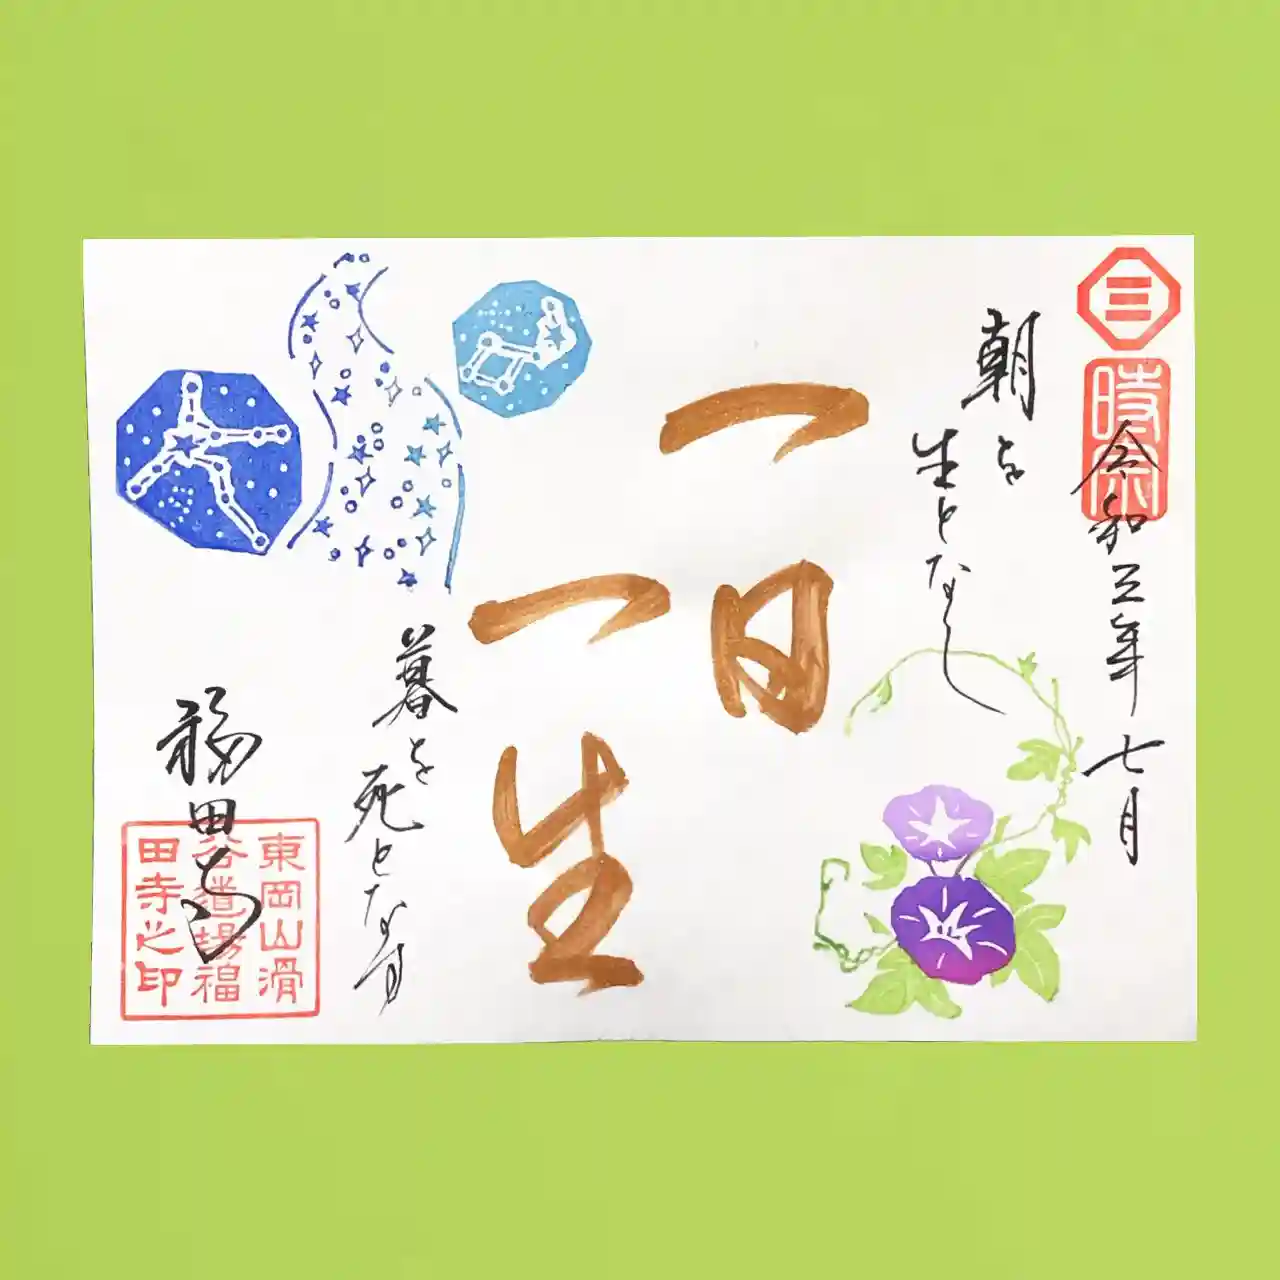 三
時宗
令和三年七月
朝を
生となし
一日
一生
暮を
死となす
福田寺
東岡山滑
谷道場福
田寺之印